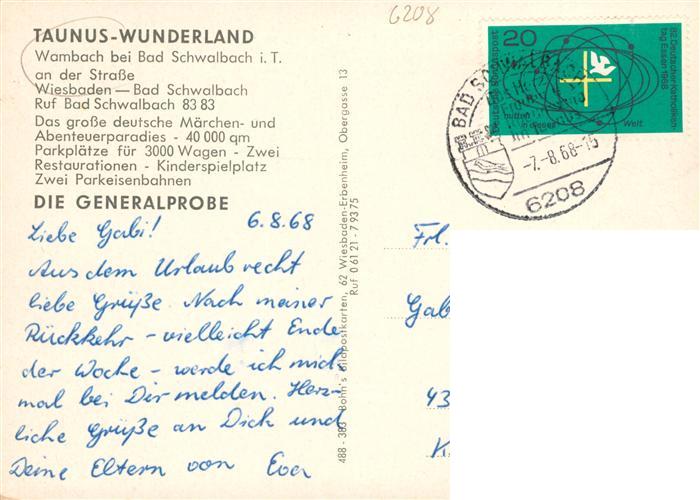 6208
TAUNUS-WUNDERLAND
Wambach bei Bad Schwalbach i. T.
an der Straße
Wiesbaden — Bad Schwalbach
Ruf Bad Schwalbach 83 83
Das große deutsche Märchen- und
Abenteuerparadies - 40 000 qm
Parkplätze für 3000 Wagen - Zwei
Restaurationen - Kinderspielplatz
Zwei Parkeisenbahnen
DIE GENERALPROBE
6.8.68
Liebe Gabi!
Aus dem Urlaub recht
liebe Grüße. Nach meiner
Rückkehr - vielleicht Ende
der Woche - werde ich mich
mal bei Dir melden. Herz-
liche Grüße an Dich und
Deine Eltern von Eva
488 - 383 Bohn's Bildpostkarten, 62 Wiesbaden-Erbenheim, Obergasse 13
Ruf 0 61 21 - 7 93 75
20
Deutsche Bundespost
82. Deutscher Katholiken-
tag Essen 1968
mitten in dieser Welt
BAD
-7.-8.68-15
6208
Frl.
Gab
43
K